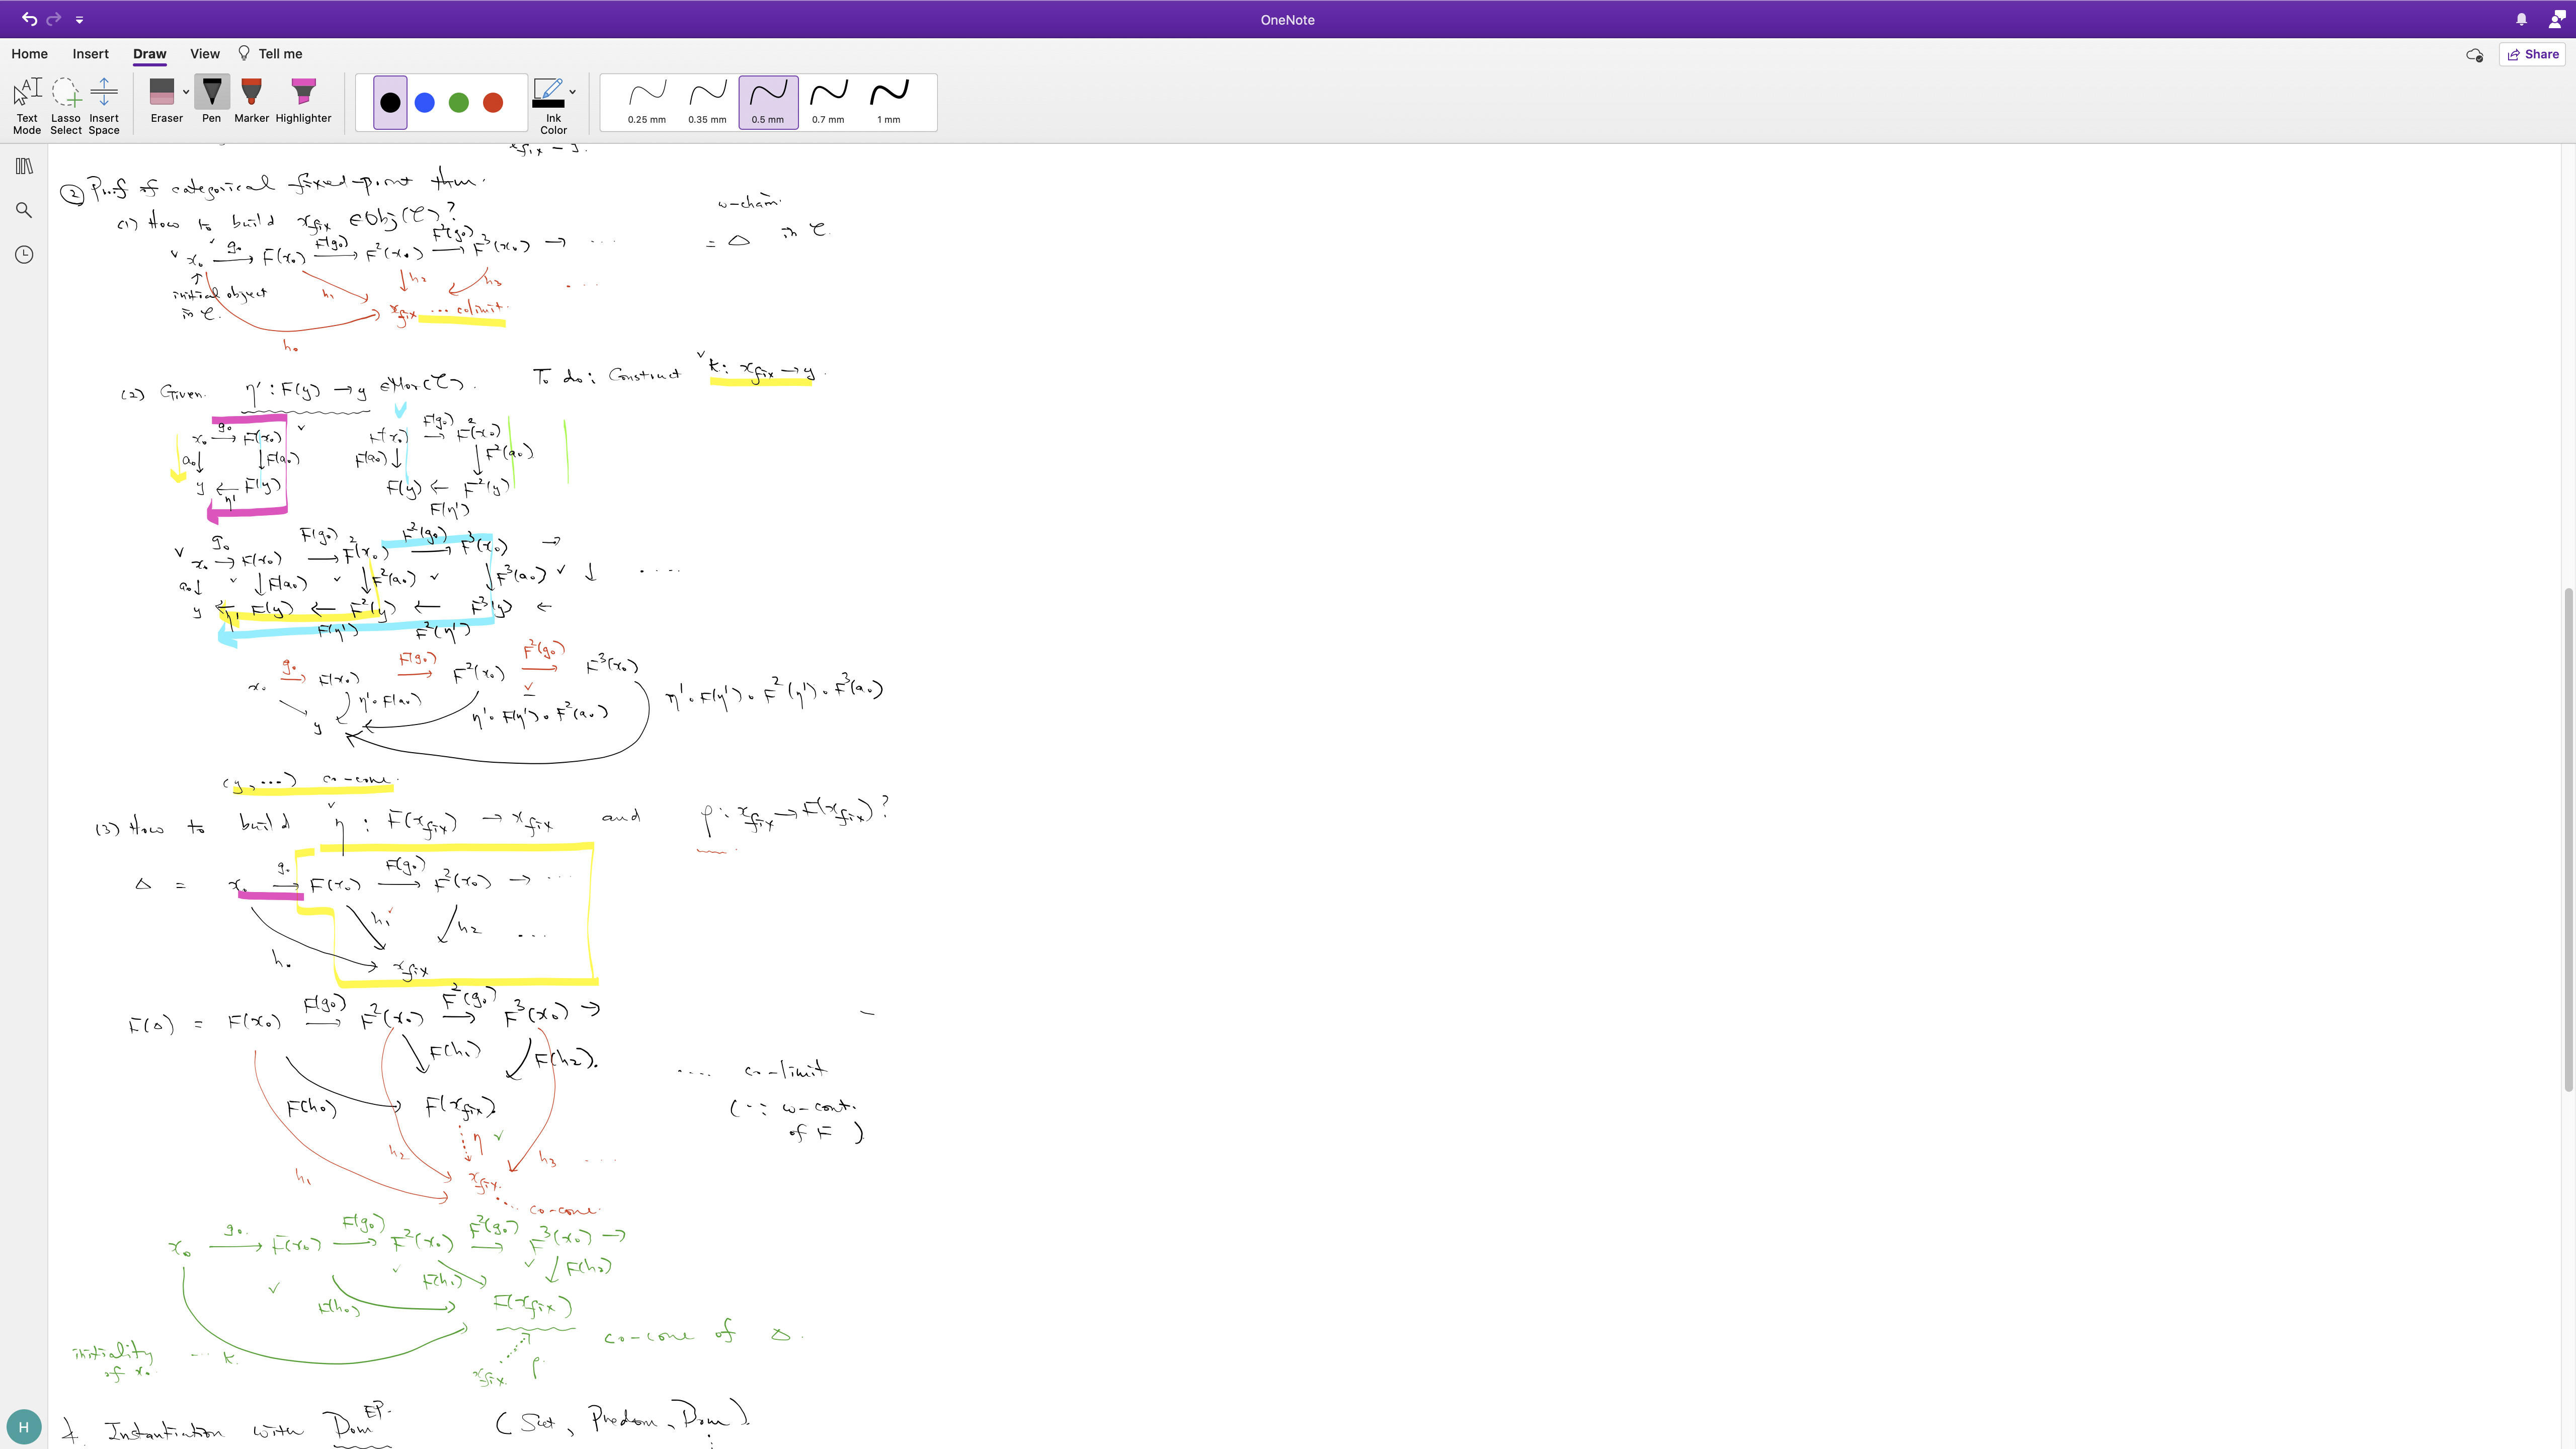 OneNote
Home Insert Draw View Tell me
Share
Text Mode
Lasso Select
Insert Space
Eraser
Pen
Marker
Highlighter
Ink Color
0.25 mm
0.35 mm
0.5 mm
0.7 mm
1 mm
x_fix → y.
② Proof of categorical fixed-point thm.
(1) How to build x_fix ∈ Obj(C)?
ω-chain in C.
x₀ →(g₀) F(x₀) →(F(g₀)) F²(x₀) →(F²(g₀)) F³(x₀) → ... = Δ
h₁ h₂ h₃ ...
↑ initial object in C.
x_fix ... colimit.
h₀
(2) Given η' : F(y) → y ∈ Mor(C). To do: Construct k: x_fix → y.
x₀ →(g₀) F(x₀) F(x₀) →(F(g₀)) F²(x₀)
a₀↓ ↓F(a₀) F(a₀)↓ ↓F²(a₀)
y ←(η') F(y) F(y) ← F²(y)
F(η')
g₀ F(g₀) F²(g₀)
x₀ → F(x₀) → F²(x₀) → F³(x₀) →
a₀↓ ↓F(a₀) ↓F²(a₀) ↓F³(a₀) ↓ ....
y ← F(y) ← F²(y) ← F³(y) ←
η' F(η') F²(η')
g₀ F(g₀) F²(g₀)
x₀ → F(x₀) → F²(x₀) → F³(x₀)
η'∘F(a₀) η'∘F(η')∘F²(a₀) η'∘F(η')∘F²(η')∘F³(a₀)
y
(y, ...) co-cone.
(3) How to build η : F(x_fix) → x_fix and ρ : x_fix → F(x_fix)?
Δ = x₀ →(g₀) F(x₀) →(F(g₀)) F²(x₀) → ...
h₁ h₂ ...
h₀
x_fix
F(Δ) = F(x₀) →(F(g₀)) F²(x₀) →(F²(g₀)) F³(x₀) →
F(h₁) F(h₂).
.... co-limit
F(h₀) F(x_fix)
(∵ ω-cont. of F)
η
h₁ h₂ h₃ ....
x_fix
... co-cone.
x₀ →(g₀) F(x₀) →(F(g₀)) F²(x₀) →(F²(g₀)) F³(x₀) →
F(h₀) F(h₁) F(h₂)
F(x_fix)
co-cone of Δ.
initiality of x₀ ... k
x_fix ρ
4. Instantiation with Dom^EP. (Set, Predom, Dom).
H